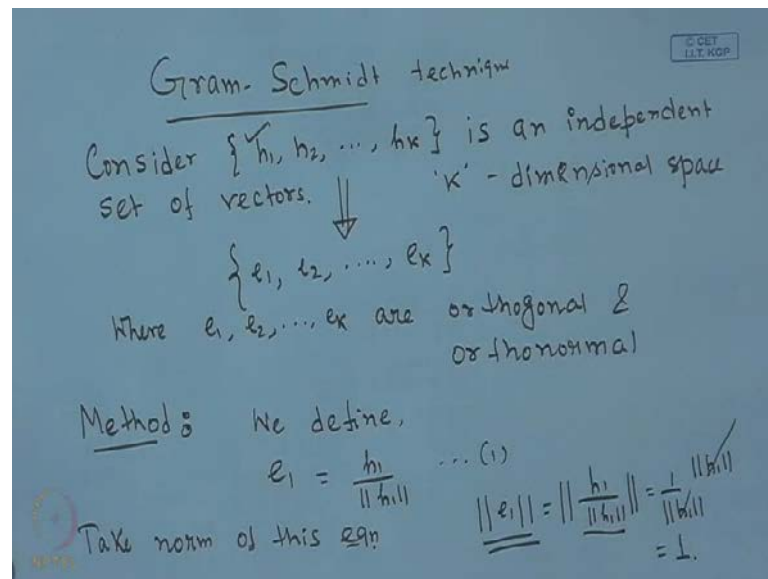 © CET
I.I.T. KGP
Gram-Schmidt technique
Consider {h1, h2, ..., hK} is an independent
set of vectors. 'K' - dimensional space
⇓
{e1, e2, ...., eK}
Where e1, e2, ..., eK are orthogonal &
orthonormal
Method: We define,
e1 = h1 / ||h1|| ... (1)
Take norm of this eqn
||e1|| = || h1 / ||h1|| || = 1 / ||h1|| ||h1||
= 1.
NPTEL